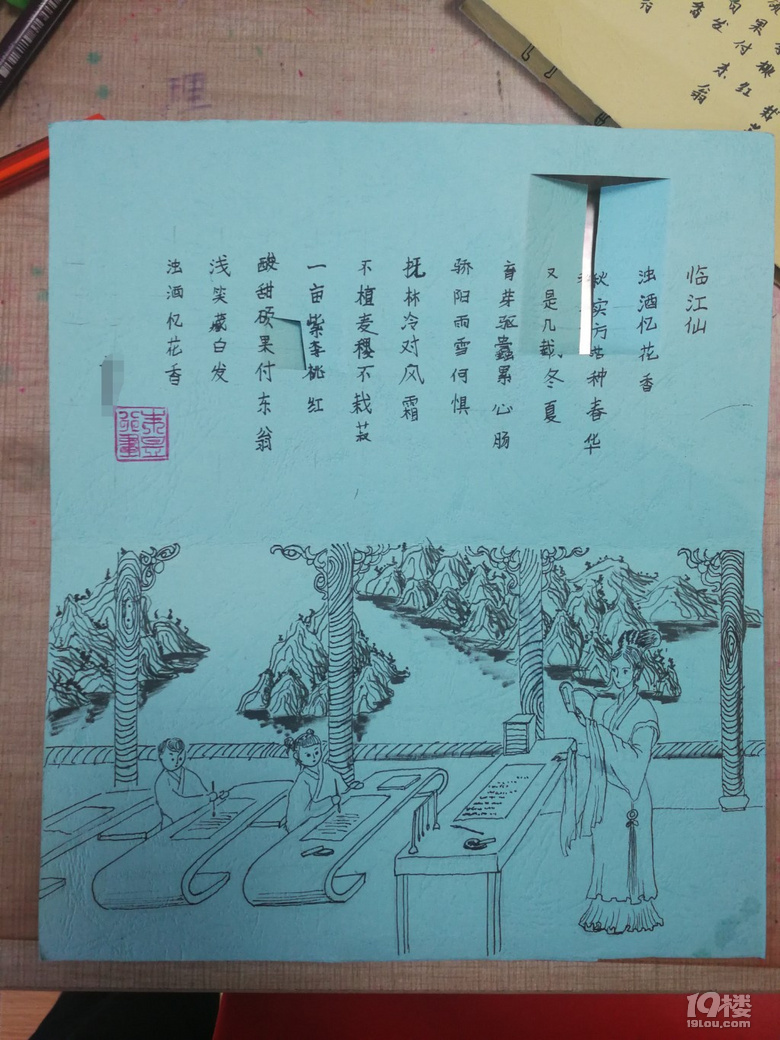 临江仙
浊酒忆花香
秋实方 种春华
又是几载冬夏
育芽驱蟲累心肠
骄阳雨雪何惧
抚林冷对风霜
不植麦稷不栽菽
一亩紫李桃红
酸甜硕果付东翁
浅笑藏白发
浊酒忆花香
理
19楼
19lou.com